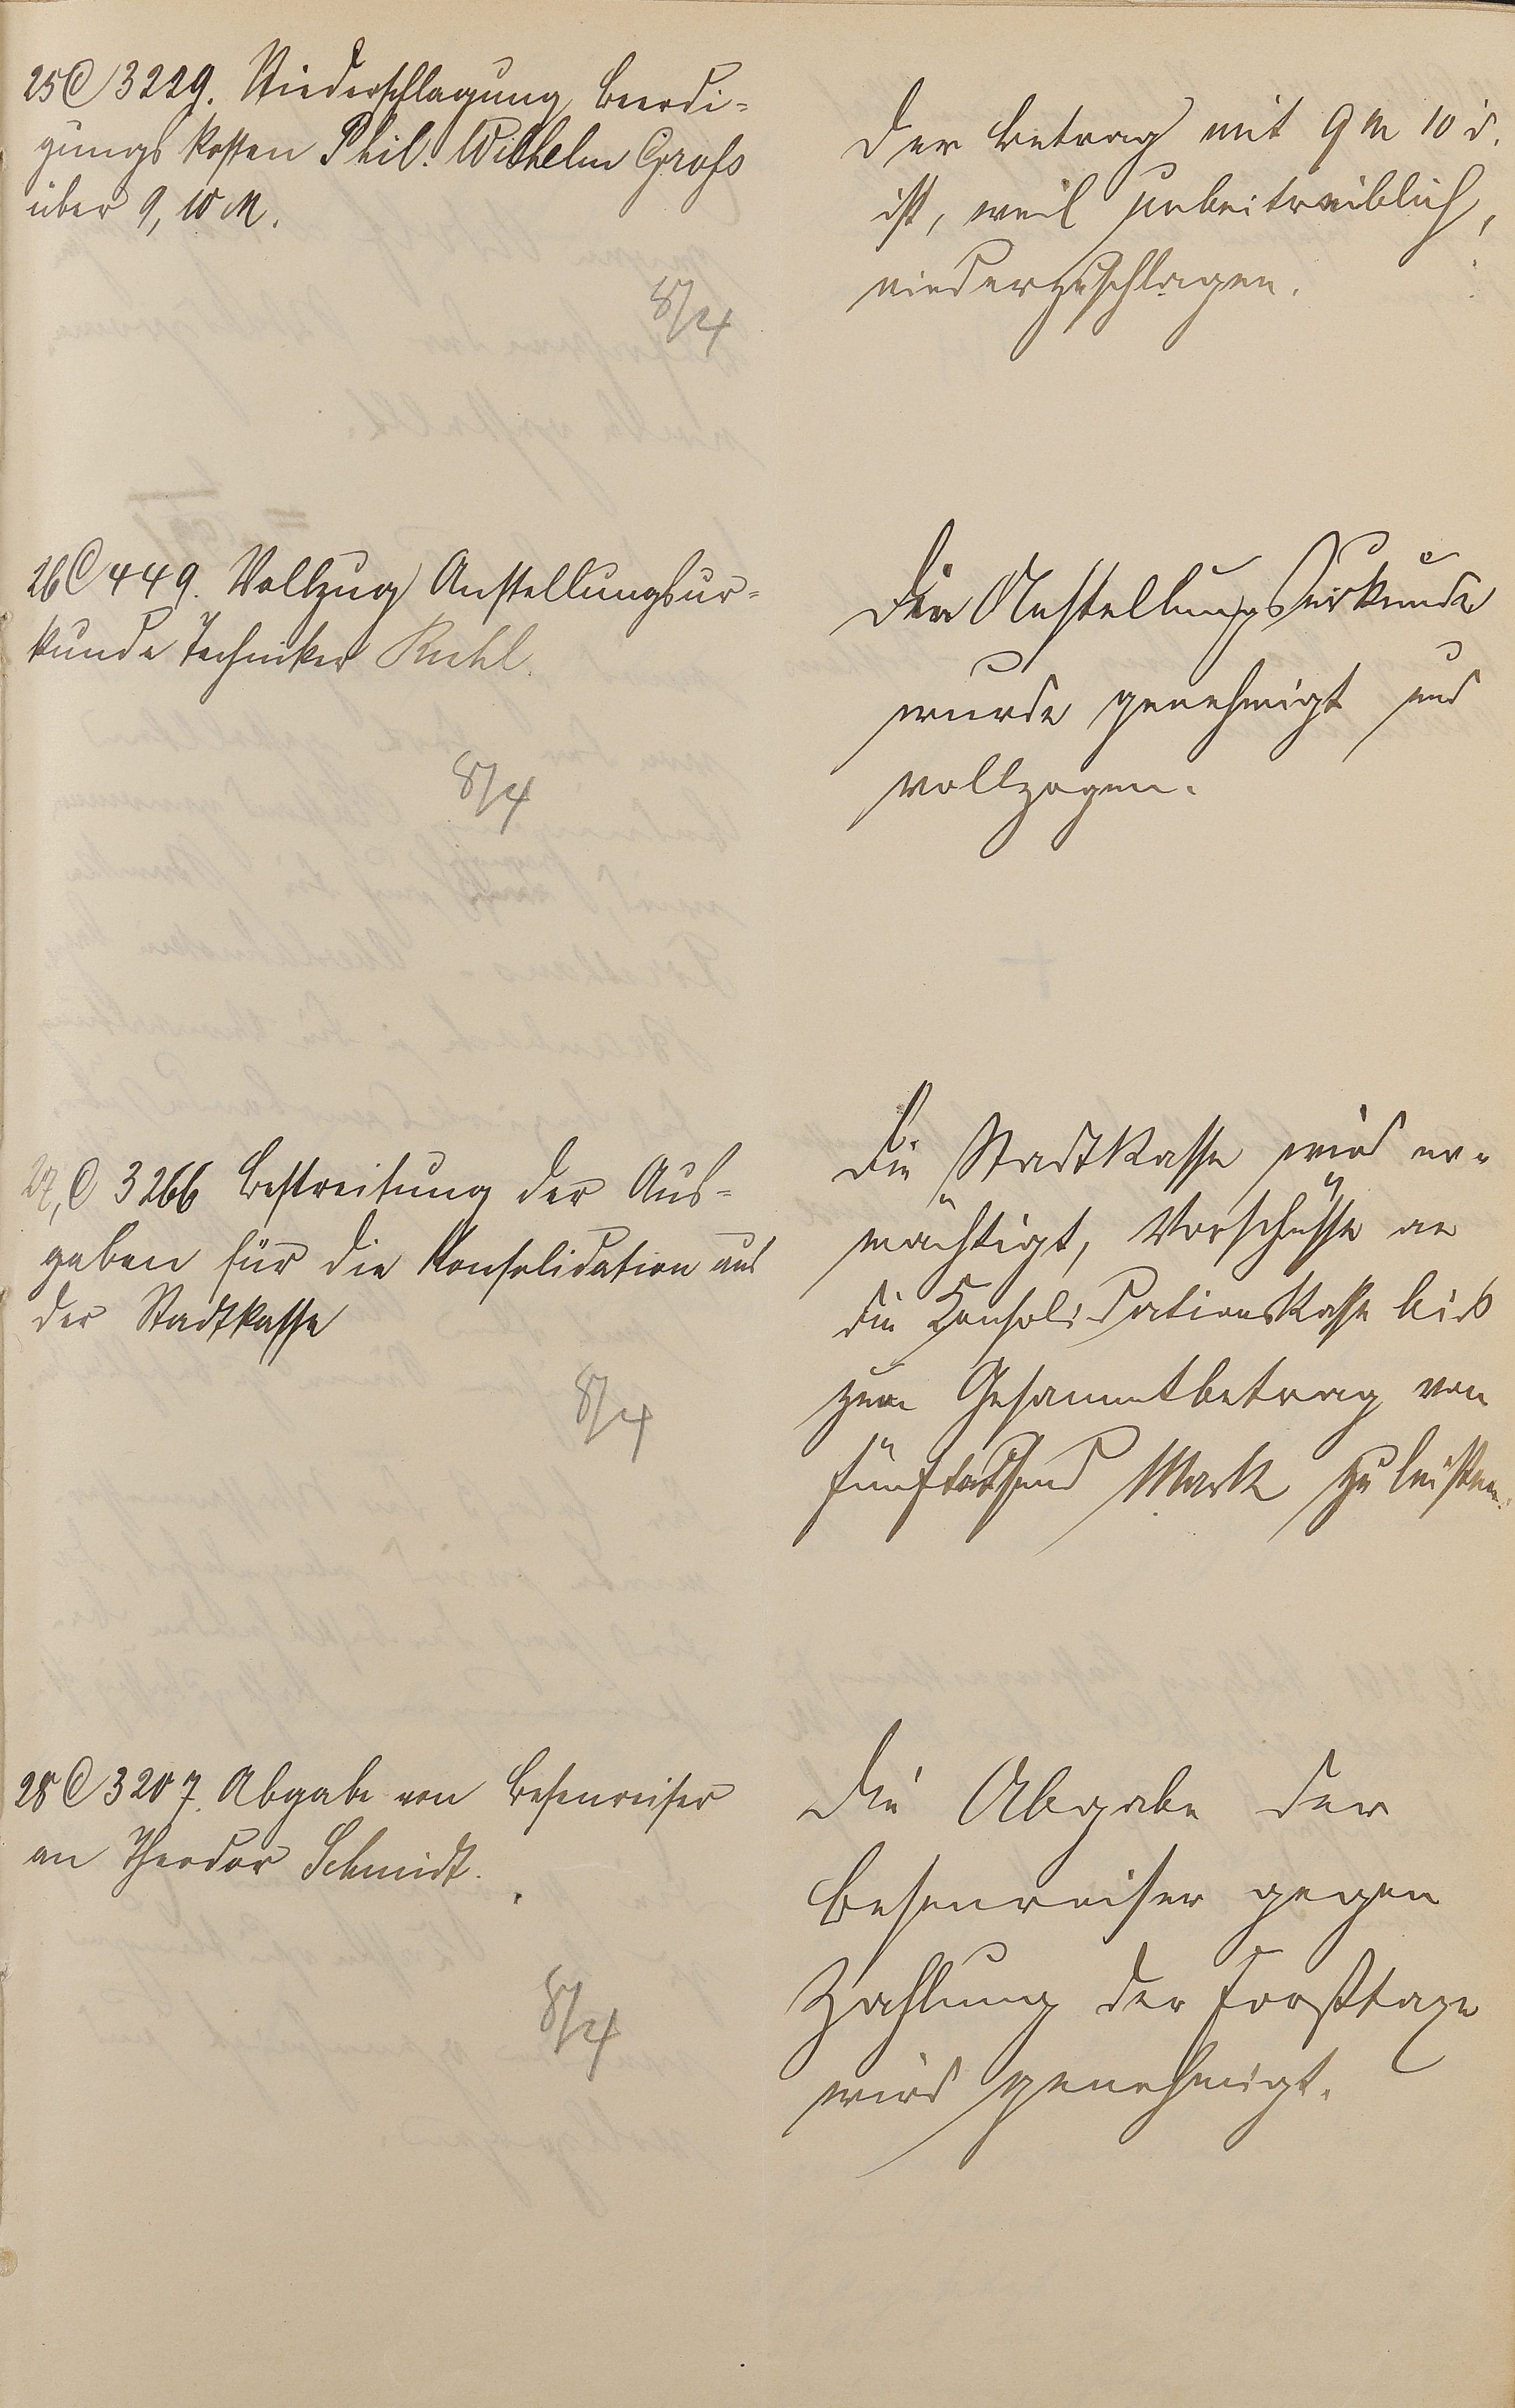 25 C 3229. Niederschlagung Beerdi-
gungskosten Phil. Wilhelm Groß
über 9,10 M.
8/4
Der Betrag mit 9 M 10 d.
ist, weil unbeitreiblich,
niederzuschlagen.
26 C 449. Vollzug Anstellungsur-
kunde Techniker Ruhl.
8/4
Die Anstellungsurkunde
wurde genehmigt und
vollzogen.
27, C 3266 Bestreitung der Aus-
gaben für die Konsolidation aus
der Stadtkasse
8/4
Die Stadtkasse wird er-
mächtigt, Vorschüsse an
die Konsolidationskasse bis
zum Gesammtbetrag von
fünftausend Mark zu leisten.
28 C 3207. Abgabe von Besenreiser
an Theodor Schmidt.
8/4
Die Abgabe der
Besenreiser gegen
Zahlung der Forsttaxe
wird genehmigt.